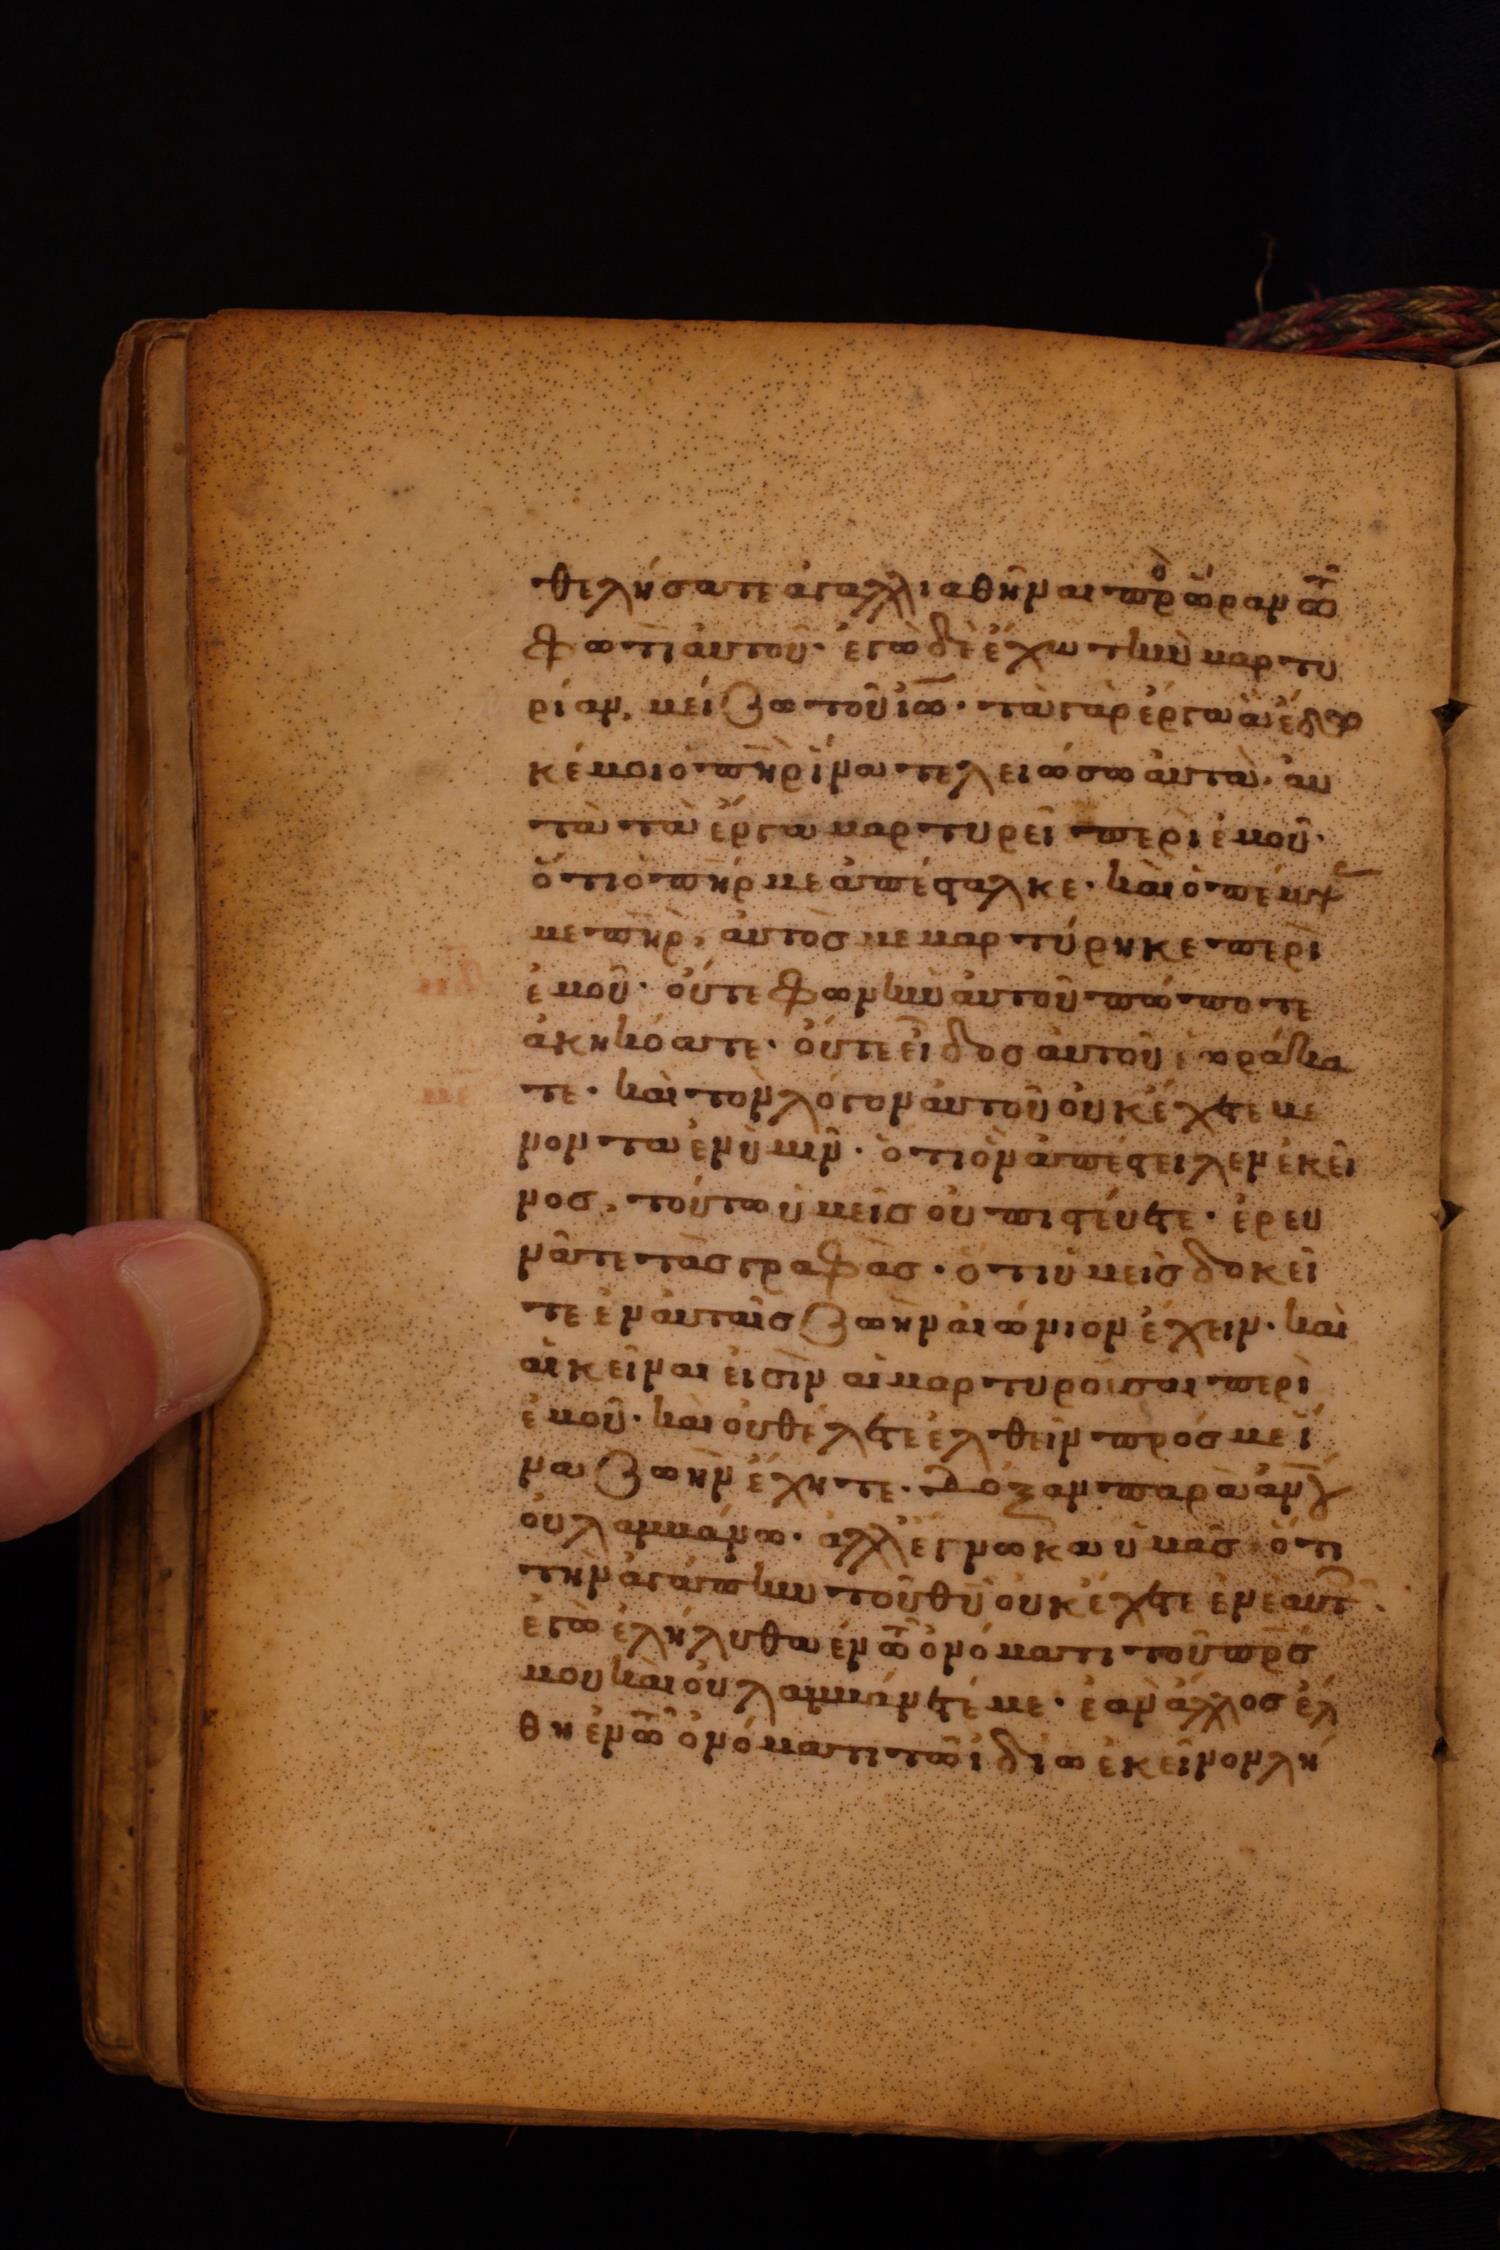 θελήσατε ἀγαλλιαθῆναι πρὸ ὥραν ἐν τῶ
φωτὶ αὐτοῦ· ἐγὼ δὲ ἔχω τὴν μαρτυ
ρίαν, μείζω τοῦ ἰω· τὰ γὰρ ἔργα ἃ ἔδω
κέ μοι ὁ πηρ ἵνα τελειώσω αὐτὰ· αὐ
τὰ τὰ ἔργα μαρτυρεῖ περὶ ἐμοῦ·
ὅτι ὁ πηρ με ἀπέσταλκε· καὶ ὁ πέμψ
με πηρ, αὐτὸς μεμαρτύρηκε περὶ
ἐμοῦ· οὔτε φωνὴν αὐτοῦ πώποτε
ἀκηκόατε· οὔτε εἶδος αὐτοῦ ἑωράκα
τε· καὶ τὸν λόγον αὐτοῦ οὐκ ἔχετε μέ
νοντα ἐν ὑμῖν· ὅτι ὃν ἀπέστειλεν ἐκεῖ
νος, τούτω ὑμεῖς οὐ πιστεύετε· ἐρευ
νᾶτε τὰς γραφὰς· ὅτι ὑμεῖς δοκεῖ
τε ἐν αὐταῖς ζωὴν αἰώνιον ἔχειν· καὶ
ἀκεῖναι εἰσὶν αἱ μαρτυροῦσαι περὶ
ἐμοῦ· καὶ οὐ θέλετε ἐλθεῖν πρός με ἵ
να ζωὴν ἔχητε· δόξαν παρὰ ἀν
οὐ λαμβάνω· ἀλλ' ἔγνωκα ὑμᾶς ὅτι
τὴν ἀγάπην τοῦ θυ οὐκ ἔχετε ἐν ἑαυτ
ἐγὼ ἐλήλυθα ἐν τῶ ὀνόματι τοῦ πρς
μου καὶ οὐ λαμβάνετέ με· ἐὰν ἄλλος ἔλ
θη ἐν τῶ ὀνόματι τῶ ἰδίω ἐκεῖνον λή